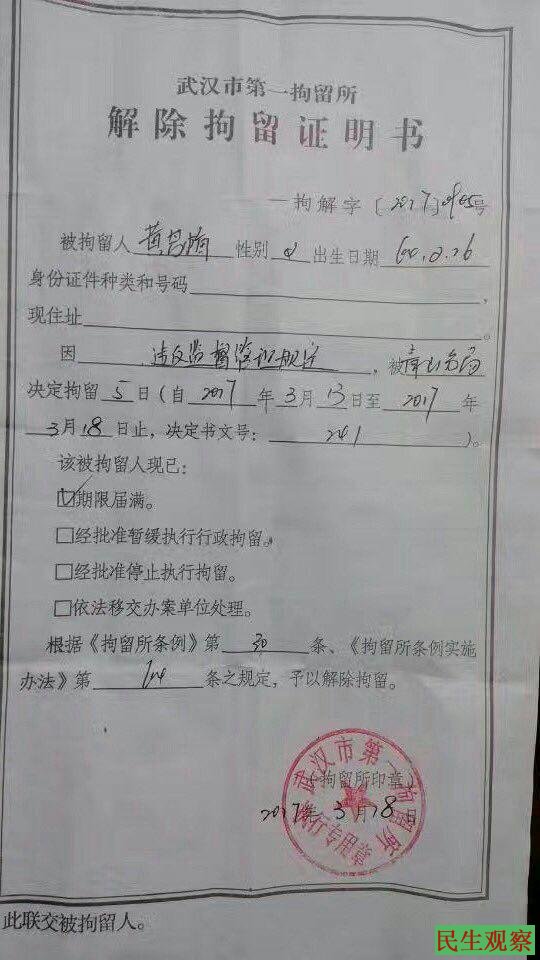 武汉市第一拘留所
解除拘留证明书
一拘解字〔2017〕号
被拘留人 黄 性别 女 出生日期 60.2.26
身份证件种类和号码 ，
现住址 。
因 违反监督管理规定 ，被青山分局
决定拘留 5 日（自 2017 年 3 月 13 日至 2017 年
3 月 18 日止，决定书文号： 241 ）。
该被拘留人现已：
☑期限届满。
□经批准暂缓执行行政拘留。
□经批准停止执行拘留。
□依法移交办案单位处理。
根据《拘留所条例》第 30 条、《拘留所条例实施
办法》第 条之规定，予以解除拘留。
武汉市第一拘留所
（拘留所印章）
2017年 3 月 18 日
执行专用章
此联交被拘留人。
民生观察